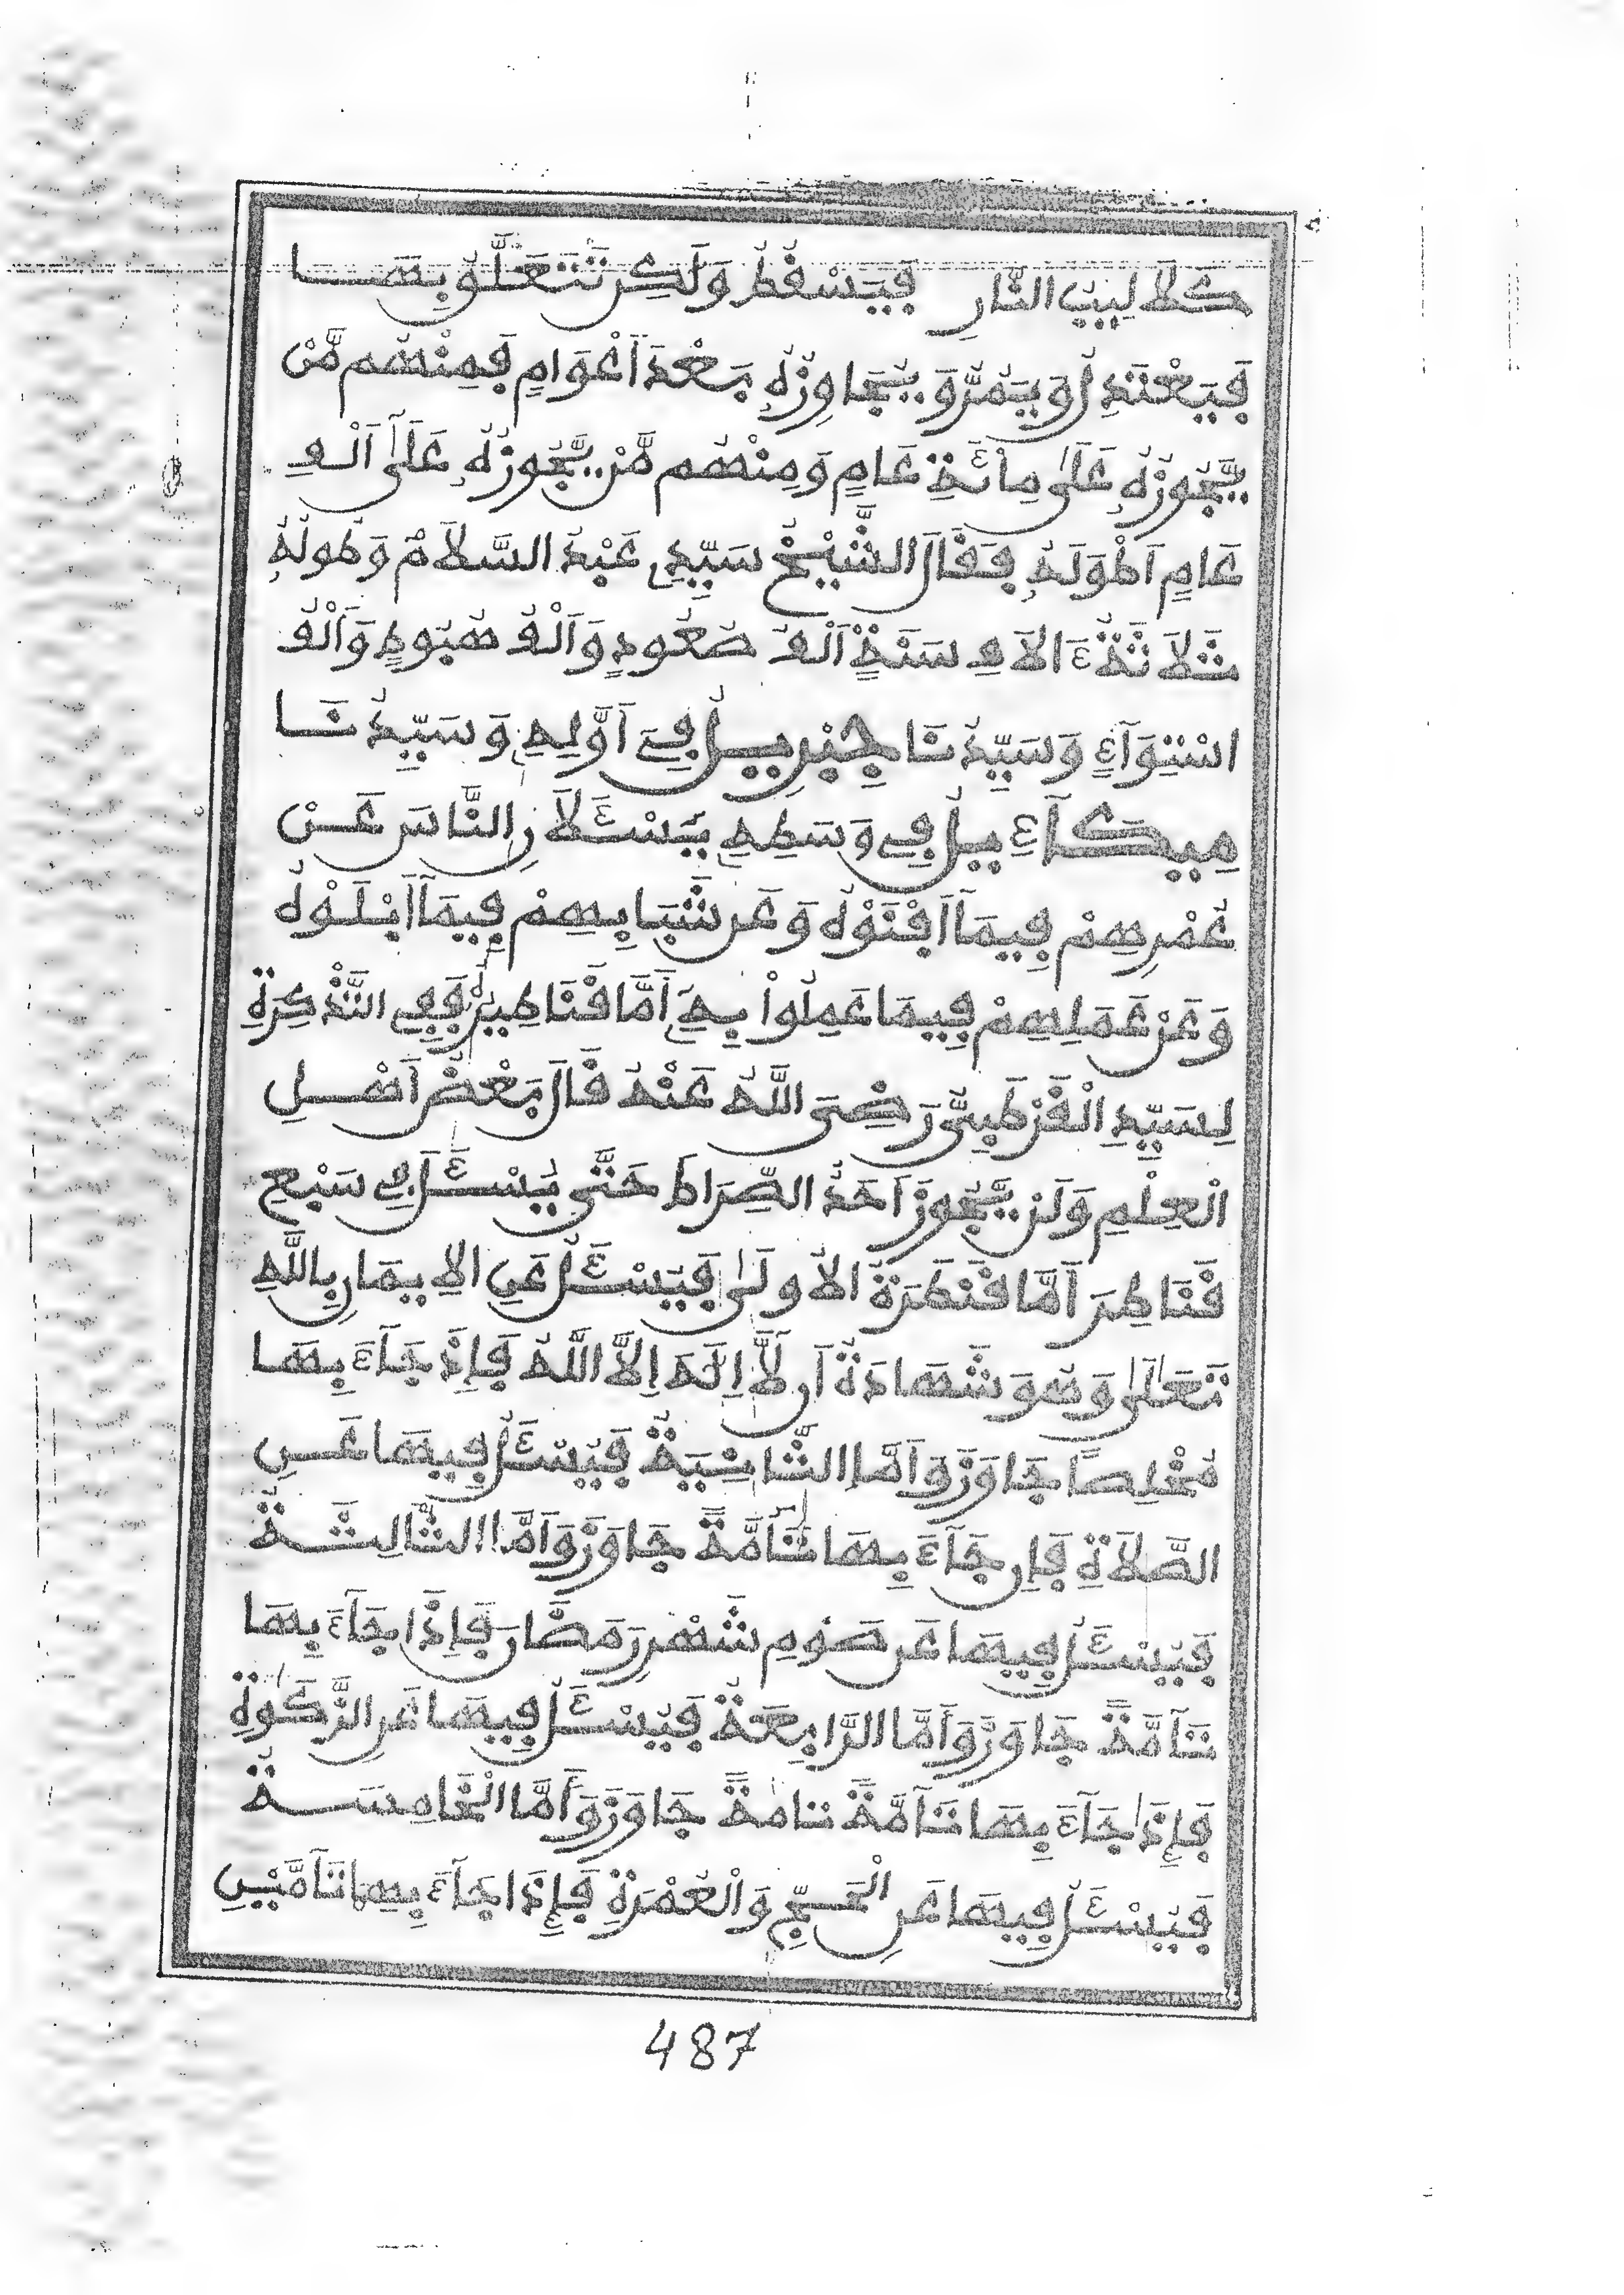 كَلَالِيبُ النَّارِ فَيَسْقُطُ وَلَكِن تَتَعَلَّقُ بِهَا
فَيَعْتَدِلُ وَيَمُرُّ وَيُجَاوِزُهُ بَعْدَ أَعْوَامٍ فَمِنْهُم مَّنْ
يَّجُوزُهُ عَلَىٰ مِائَةِ عَامٍ وَمِنْهُم مَّنْ يَّجُوزُهُ عَلَىٰ أَلْفِ
عَامٍ أَطْوَلَهُ فَقَالَ الشَّيْخُ سَيِّدِي عَبْدُ السَّلَامُ وَطُولُهُ
ثَلَاثَةُ ءَالَافِ سَنَةٍ أَلْفَ صُعُودٍ وَأَلْفُ هُبُوطٍ وَأَلْفُ
اسْتِوَآءٍ وَسَيِّدُنَا جِبْرِيلُ فِي أَوَّلِهِ وَسَيِّدُنَا
مِيكَآءِيلُ فِي وَسَطِهِ يَسْـَٔلَانِ النَّاسَ عَنْ
عُمْرِهِمْ فِيمَا أَفْنَوْهُ وَعَن شَبَابِهِمْ فِيمَآ أَبْلَوْهُ
وَعَنْ عَمَلِهِمْ فِيمَا عَمِلُواْ بِهِ أَمَّا قَنَاطِيرُهُ فَفِي التَّذْكِرَةِ
لِسَيِّدِ الْقُرْطُبِيِّ رَضِيَ اللَّهُ عَنْهُ قَالَ بَعْضُ أَهْلِ
الْعِلْمِ وَلَن يَّجُوزَ أَحَدُ الصِّرَاطَ حَتَّى يُسْـَٔلَ فِي سَبْعِ
قَنَاطِرَ أَمَّا قَنْطَرَةُ الْأُولَىٰ فَيُسْـَٔلُ عَنِ الْإِيمَانِ بِاللَّهِ
تَعَالَىٰ وَهُوَ شَهَادَةُ أَن لَّآ إِلَٰهَ إِلَّا اللَّهُ فَإِذْ جَآءَ بِهَا
مُخْلِصًا جَاوَزَ وَأَمَّا الثَّانِيَةُ فَيُسْـَٔلُ فِيهَا عَنِ
الصَّلَاةِ فَإِن جَآءَ بِهَا تَآمَّةً جَاوَزَ وَأَمَّا الثَّالِثَةُ
فَيُسْـَٔلُ فِيهَا عَن صَوْمِ شَهْرِ رَمَضَانَ فَإِذَا جَآءَ بِهَا
تَآمَّةً جَاوَزَ وَأَمَّا الرَّابِعَةُ فَيُسْـَٔلُ فِيهَا عَنِ الزَّكَوٰةِ
فَإِذَا جَآءَ بِهَا تَآمَّةً تامةً جَاوَزَ وَأَمَّا الْخَامِسَةُ
فَيُسْـَٔلُ فِيهَا عَنِ الْحَجِّ وَالْعُمْرَةِ فَإِذَا جَآءَ بِهِمَا تَآمَّيْنِ
487